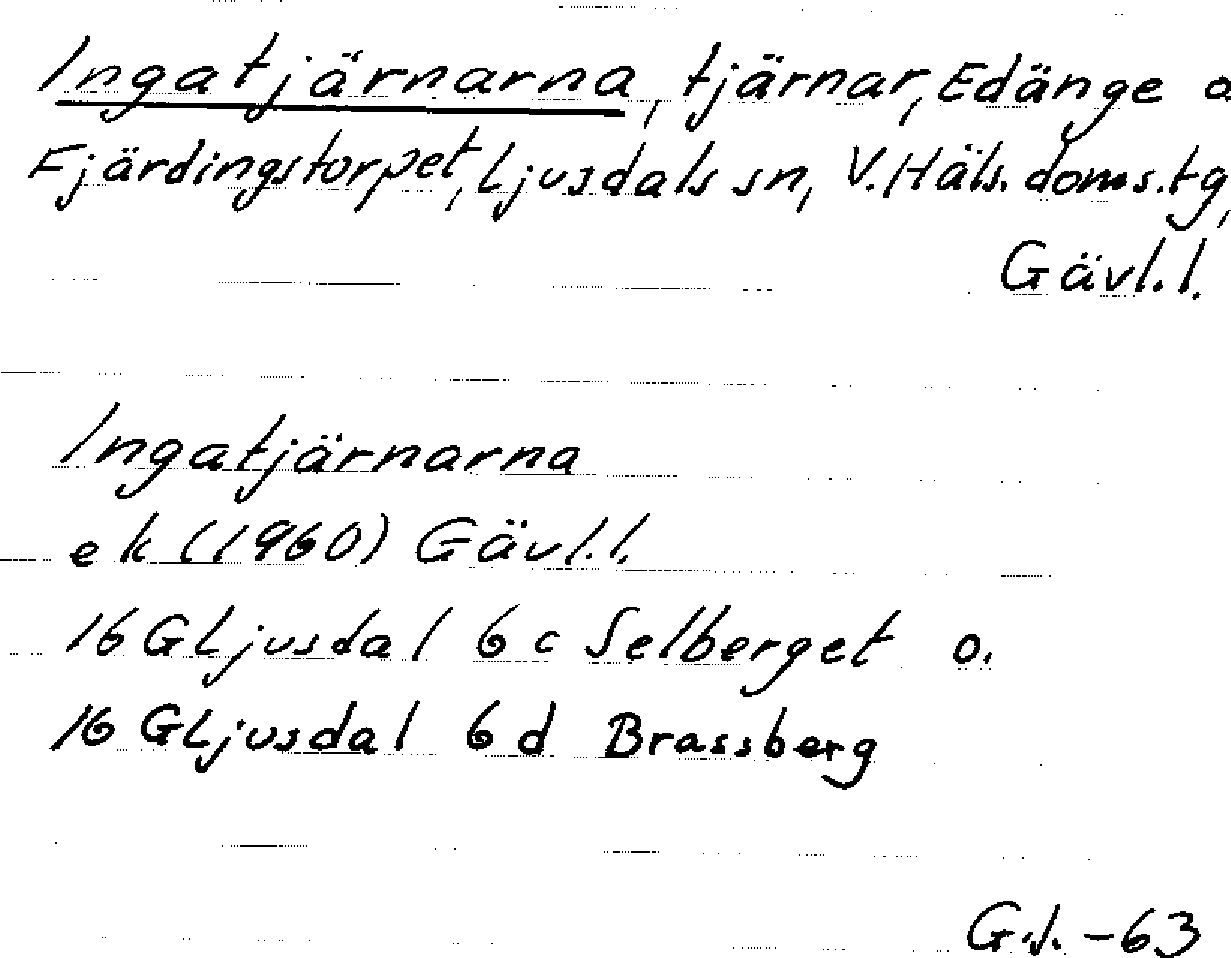 Ingatjärnarna, tjärnar, Edänge o.
Fjärdingstorpet, Ljusdals sn, V. Häls. doms. tg,
Gävl. l.
Ingatjärnarna
ek (1960) Gävl. l.
16 G Ljusdal 6 c Selberget o.
16 G Ljusdal 6 d Brassberg
-63